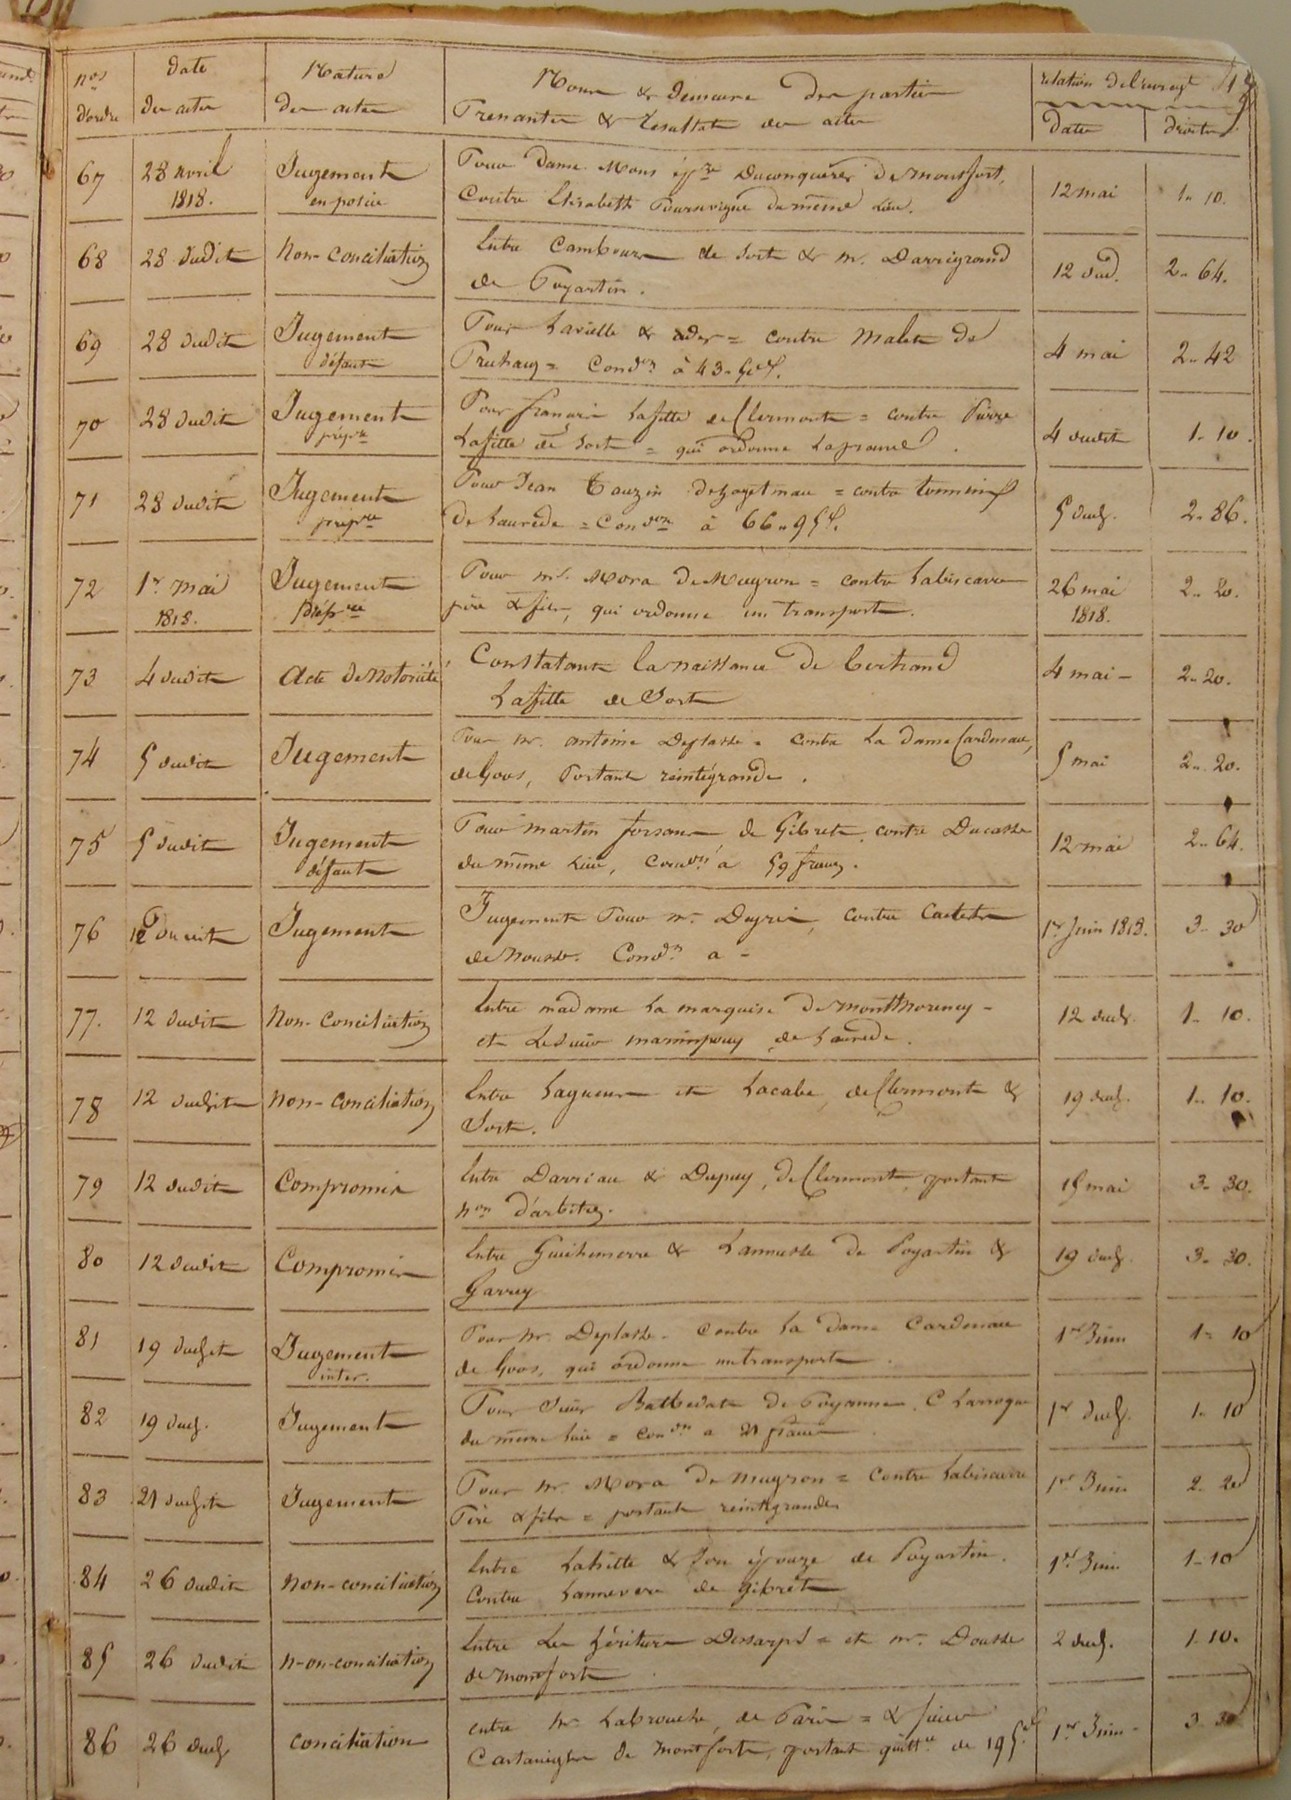 nos d'ordre | Date des actes | Nature des actes | Noms & Demeure des parties Prenantes & Résultats des actes | relation de l'enregt dates | droits
67 | 28 avril 1818. | Jugement en police | Pour Dame Mons épse Duconquéré de Montfort,
Contre Elisabeth du même lieu. | 12 mai | 1 " 10.
68 | 28 dudit | Non-Conciliation | Entre Cambours de Sort & Mr. Darrigrand
de Poyartin. | 12 dud. | 2 " 64.
69 | 28 dudit | Jugement défaut | Pour Lavielle & = contre Malet de
= Condon à 43 " | 4 mai | 2 " 42
70 | 28 dudit | Jugement prépre | Pour françois Lafitte de Clermont = contre Pierre
Lafitte de Sort = qui ordonne la preuve. | 4 dudit | 1 " 10.
71 | 28 dudit | Jugement prépre | Pour Jean Tauzin d'hagetmau = contre
de Laurède = Condon à 66 " 95 | 5 dud. | 2 " 86.
72 | 1er mai 1818. | Jugement prépre | Pour Mr. Mora de Mugron = contre Labiscarre
père & fils, qui ordonne un transport. | 26 mai 1818. | 2 " 20.
73 | 4 dudit | Acte de Notoriété | Constatant la naissance de Bertrand
Lafitte de Sort | 4 mai - | 2 " 20.
74 | 5 dudit | Jugement | Pour Mr. antoine Deplasse = contre La Dame Cardenau,
de Goos, Portant réintégrande. | 5 mai | 2 " 20.
75 | 5 dudit | Jugement défaut | Pour Martin de Gibret, contre Ducasse
du même Lieu, Condon à 59 francs. | 12 mai | 2 " 64.
76 | 12 dudit | Jugement | Jugement Pour Mr. Deyris, contre
de Nousse. Condon a - | 1er Juin 1818. | 3 " 30
77. | 12 dudit | Non-Conciliation | Entre madame La marquise de Montmorency -
et Le sieur de Laurède. | 12 dud. | 1 " 10.
78 | 12 dudit | Non-Conciliation | Entre et Lacabe, de Clermont &
Sort. | 19 dud. | 1 " 10.
79 | 12 dudit | Compromis | Entre Darriau & Dupuy, de Clermont, portant
non d'arbitres. | 15 mai | 3 " 30.
80 | 12 dudit | Compromis | Entre Guichemerre & Lannusse de Poyartin &
Garrey | 19 dud. | 3 " 30.
81 | 19 dudit | Jugement inter. | Pour Mr. Deplasse = contre La dame Cardenau
de Goos, qui ordonne un transport. | 1er Juin | 1 " 10
82 | 19 dud. | Jugement | Pour Sieur Batbedat de Poyanne C. Larroque
du même lieu = condon a 21 francs. | 1er dud. | 1 " 10
83 | 21 dudit | Jugement | Pour Mr. Mora de mugron = contre Labiscarre
Père & fils = portant réintégrande | 1er Juin | 2 " 20
84 | 26 dudit | Non-conciliation | Entre Lahitte & son épouze de Poyartin.
Contre Lannevere de Gibret | 1er Juin | 1 " 10
85 | 26 dudit | non-conciliation | Entre Les héritiers = et Mr. Dousse
de Montfort. | 2 dud. | 1 " 10.
86 | 26 dud. | Conciliation | entre Mr. Labrouche, de Paris = & sieur
Castaings de Montfort, portant quittce de 195 | 1er Juin - | 3 " 30